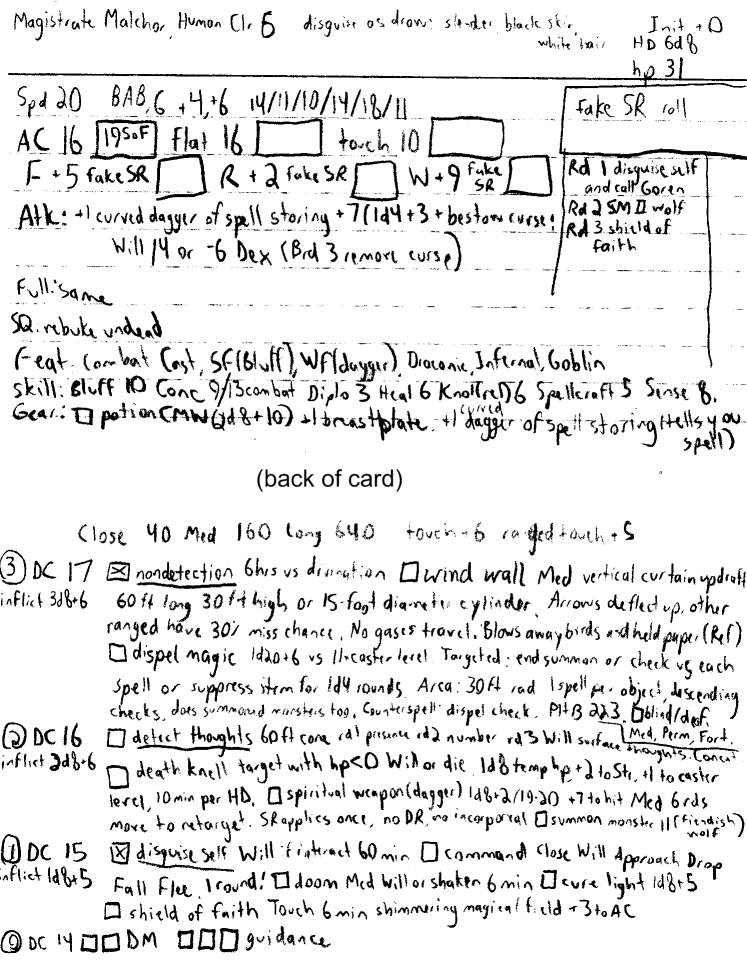 Magistrate Malchor, Human Clr 6 disguise as drow: slender, black skin, white hair
Init +0
HD 6d8
hp 31
Spd 20 BAB, 6 +4, +6 14/11/10/14/18/11
fake SR roll
AC 16 19 SoF flat 16 touch 10
F +5 fake SR R +2 fake SR W +9 fake SR
Rd 1 disguise self
and call Goren
Rd 2 SM II wolf
Rd 3 shield of
faith
Atk: +1 curved dagger of spell storing +7 (1d4+3 + bestow curse:
Will 14 or -6 Dex (Brd 3 remove curse)
Full: same
SQ: rebuke undead
Feat: Combat Cast, SF(Bluff), WF(dagger), Draconic, Infernal, Goblin
Skill: Bluff 10 Conc 9/13 combat Diplo 3 Heal 6 Kno(rel) 6 Spellcraft 5 Sense 8.
Gear: potion CMW (2d8+10) +1 breastplate, +1 curved dagger of spell storing (tells you spell)
(back of card)
Close 40 Med 160 Long 640 touch +6 ranged touch +5
3 DC 17 nondetection 6hrs vs divination wind wall Med vertical curtain updraft
inflict 3d8+6 60 ft long 30 ft high or 15-foot diameter cylinder. Arrows deflect up, other
ranged have 30% miss chance. No gases travel. Blows away birds and held paper (Ref)
dispel magic 1d20+6 vs 11+caster level Targeted: end summon or check vs each
spell or suppress item for 1d4 rounds. Area: 30 ft rad 1 spell per object, descending
checks, does summoned monsters too, Counterspell: dispel check. PHB 223. blind/deaf.
Med, Perm, Fort.
2 DC 16 detect thoughts 60 ft cone rd1 presence rd2 number rd3 Will surface thoughts. Concen.
inflict 2d8+6 death knell target with hp<0 Will or die. 1d8 temp hp, +2 to Str, +1 to caster
level, 10 min per HD. spiritual weapon (dagger) 1d8+2/19-20 +7 to hit Med 6 rds
move to retarget. SR applies once, no DR, no incorporeal summon monster II (fiendish wolf)
1 DC 15 disguise self Will if interact 60 min command Close Will Approach Drop
inflict 1d8+5 Fall Flee 1 round! doom Med Will or shaken 6 min cure light 1d8+5
shield of faith Touch 6 min shimmering magical field +3 to AC
0 DC 14 DM guidance